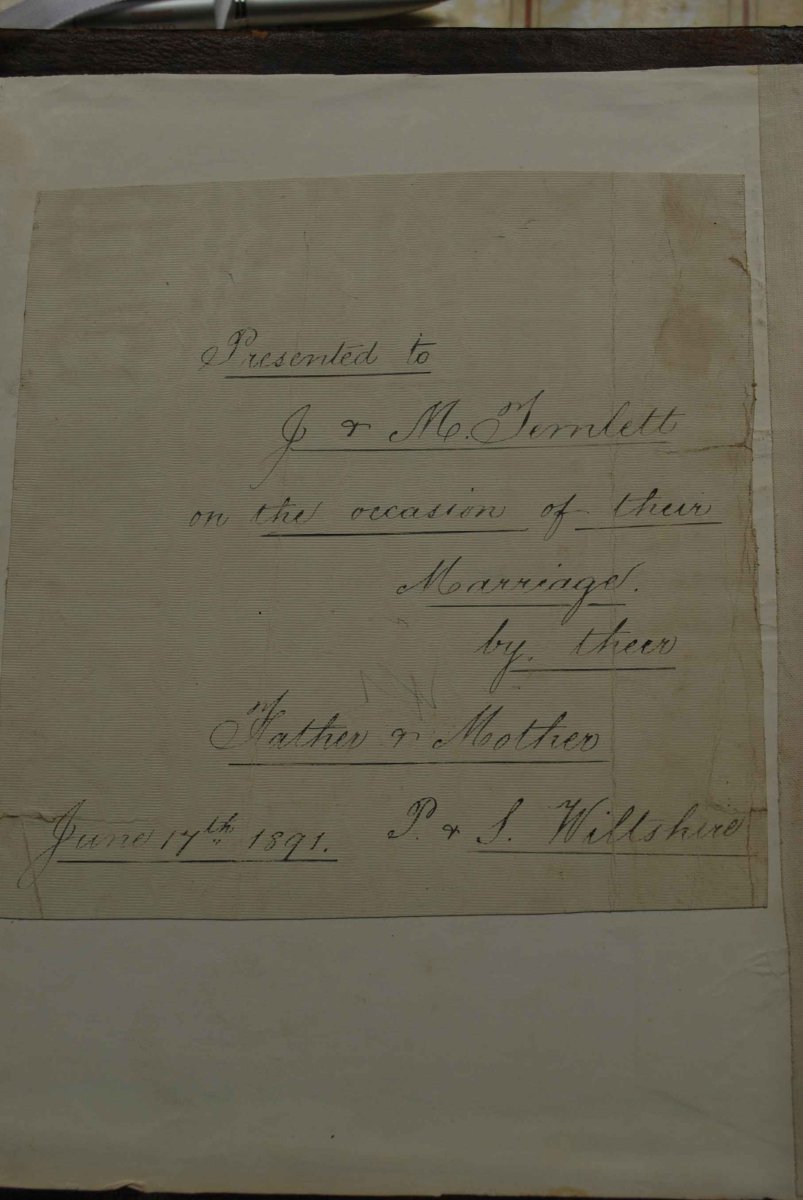 Presented to
J & M. Temlett
on the occasion of their
Marriage.
by their
Father & Mother
June 17th 1891. P. & S. Wiltshire